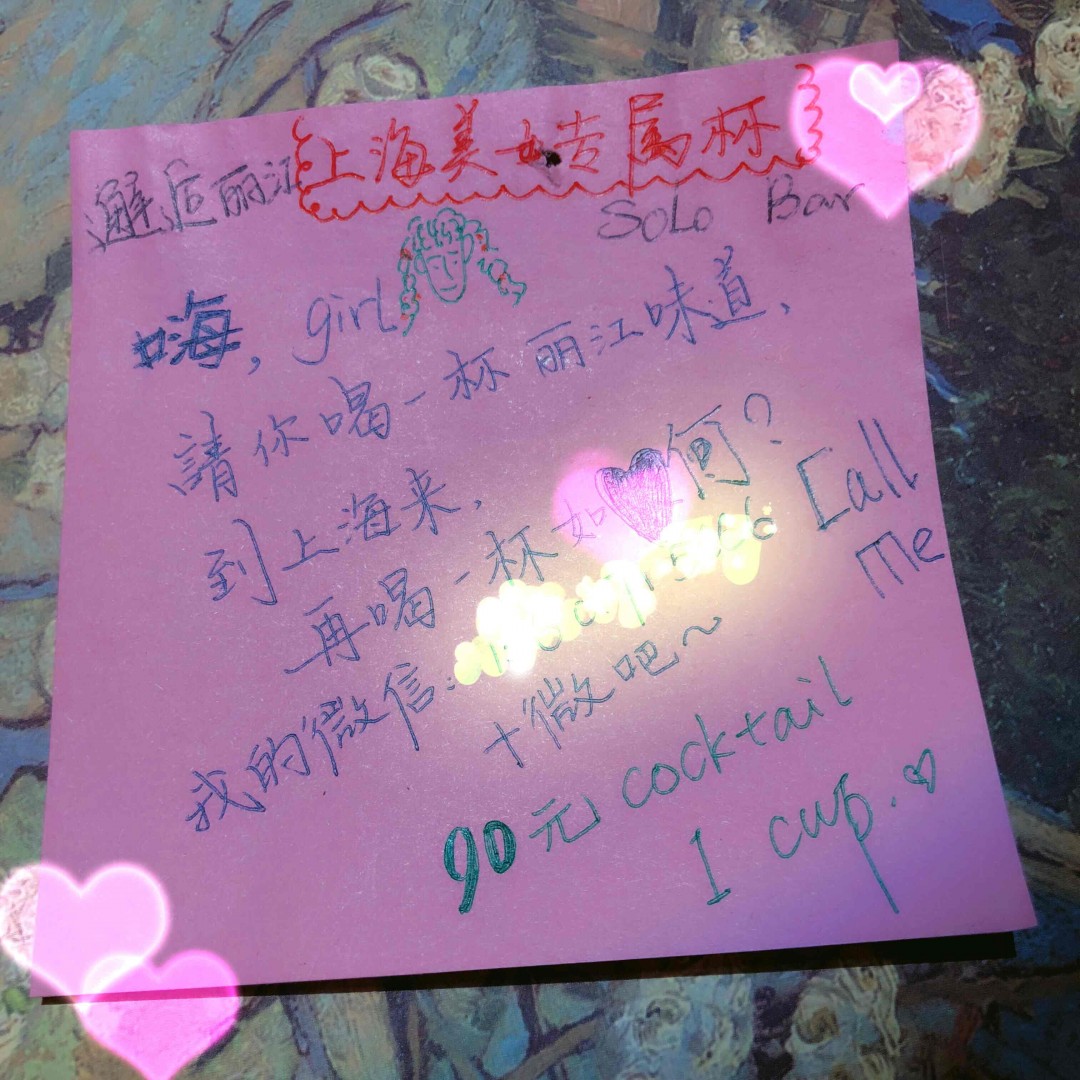 上海美女专属杯
邂逅丽江 SoLo Bar
嗨, girl
請你喝一杯丽江味道,
到上海来,
再喝一杯如何?
我的微信: Call
Me
+微吧~
90元 cocktail
1 cup.